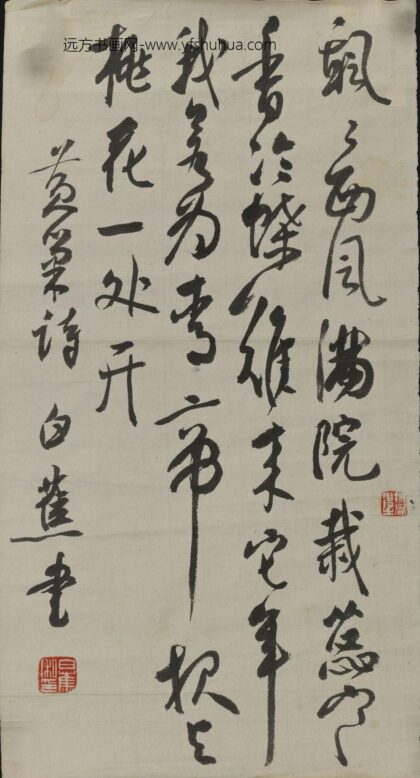 远方书画网-www.yfshuhua.com
飒〻西风满院栽蕊寒
香冷蝶難来它年
我若为青帝报与
桃花一处开
黄巢诗 白蕉书